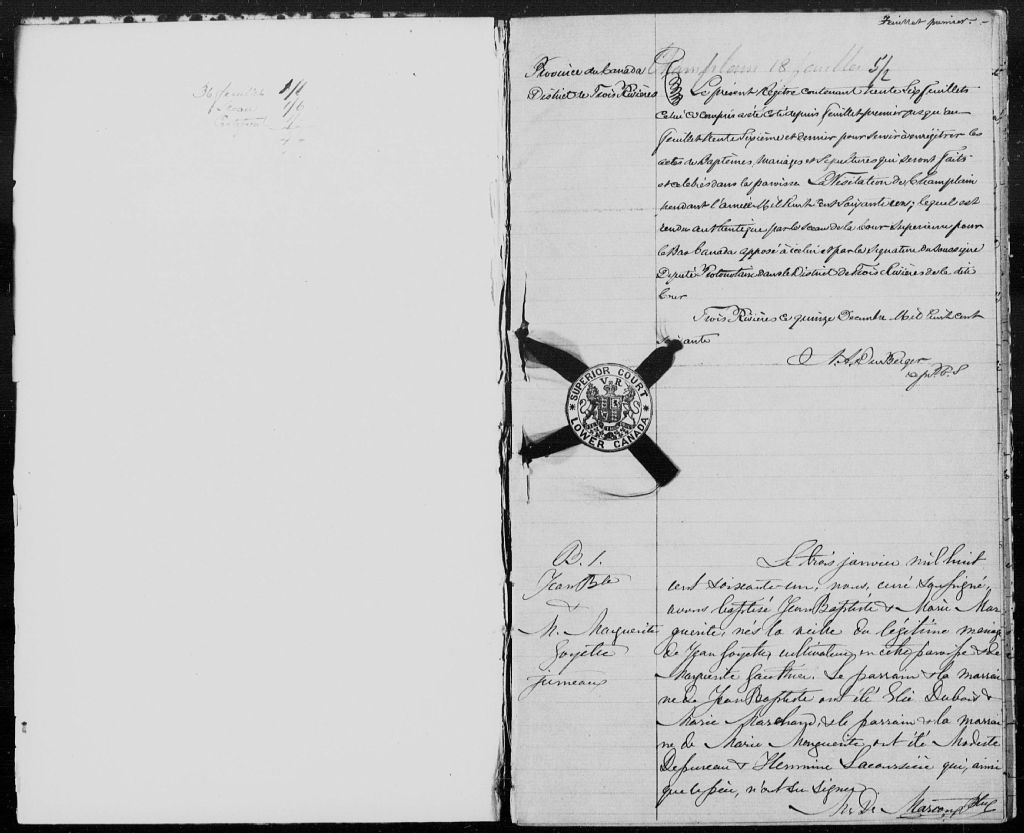 36 feuillets 1/8
Sceau 1/6
Certificat
Feuillet premier
Champlain 18 feuillets 5/2
Province du Canada
District de Trois Rivières
Le présent Régistre contenant trente Six feuillets
celui ci compris a été coté depuis feuillet premier jusqu'au
feuillet trente Sixième et dernier pour servir à enrégistrer les
actes de Baptêmes, Mariages et Sepultures qui seront faits
et célébrés dans la paroisse La Visitation de Champlain
pendant l'année Mil huit cent Soixante un; lequel est
rendu authentique par le Sceau de la Cour Superieure pour
le Bas Canada apposé à icelui et par la signature du Soussigné
Député Protonotaire dans le District de Trois Rivières de la dite
Cour
Trois Rivières ce quinze Decembre Mil huit cent
soixante
SUPERIOR COURT
V R
LOWER CANADA
B. 1.
Jean Bte
&
M. Marguerite
Goyette
jumeaux
Le trois janvier mil huit
cent soixante-un, nous, curé soussigné,
avons baptisé Jean Baptiste & Marie Mar
guerite, nés la veille du légitime mariage
de Jean Goyette, cultivateur, en cette paroisse & de
Marguerite Gauthier. Le parrain & la marrai
ne de Jean Baptiste ont été Elie Dubois &
Marie Marchand, & le parrain & la marrai
ne de Marie Marguerite ont été Modeste
& Hermine Lacoursière qui, ainsi
que le père, n'ont su signer.